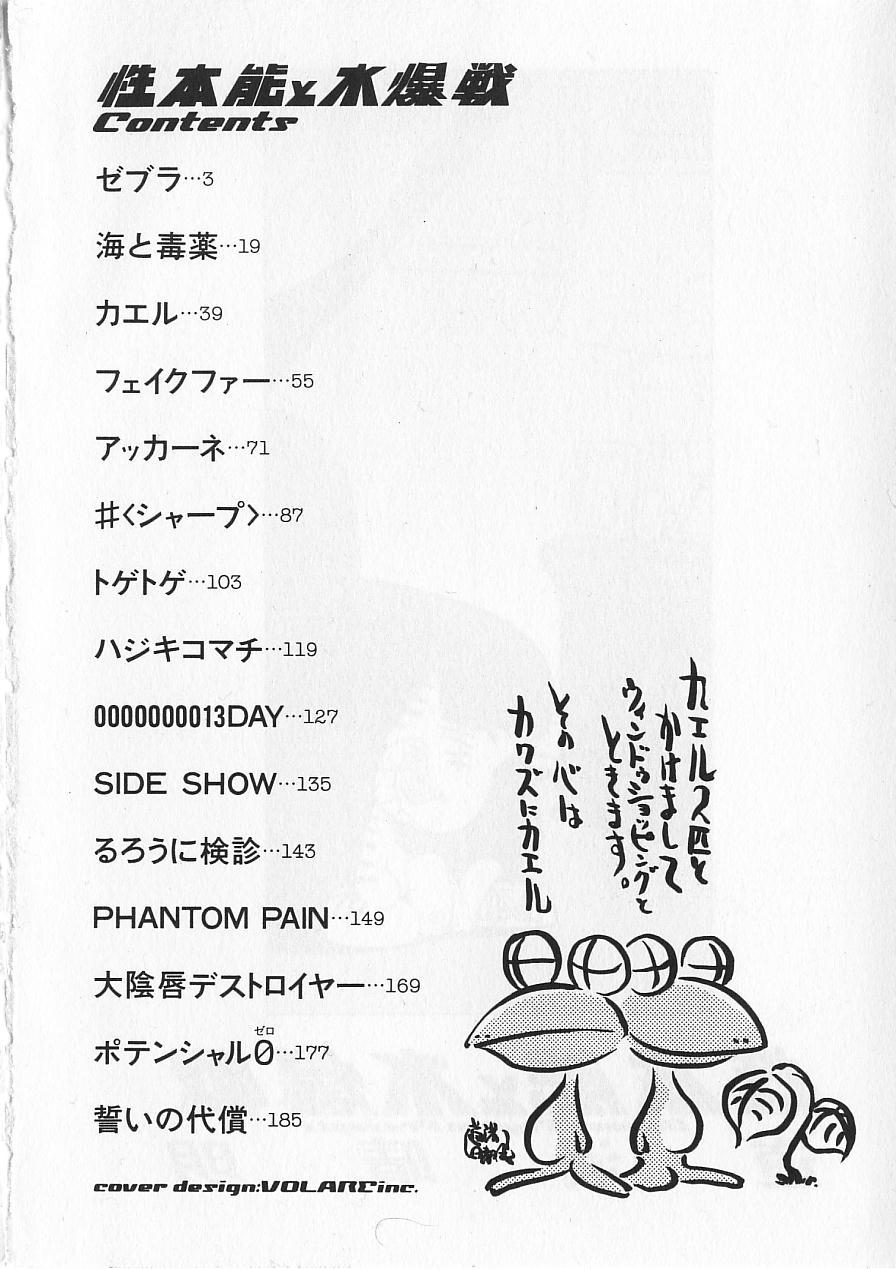 性本能と水爆戦
Contents
ゼブラ…3
海と毒薬…19
カエル…39
フェイクファー…55
アッカーネ…71
♯〈シャープ〉…87
トゲトゲ…103
ハジキコマチ…119
0000000013DAY…127
SIDE SHOW…135
るろうに検診…143
PHANTOM PAIN…149
大陰唇デストロイヤー…169
ゼロ
ポテンシャル0…177
誓いの代償…185
cover design:VOLAREinc.
カエル2匹と
かけまして
ウィンドウショッピングと
ときます。
その心は
カワズにカエル